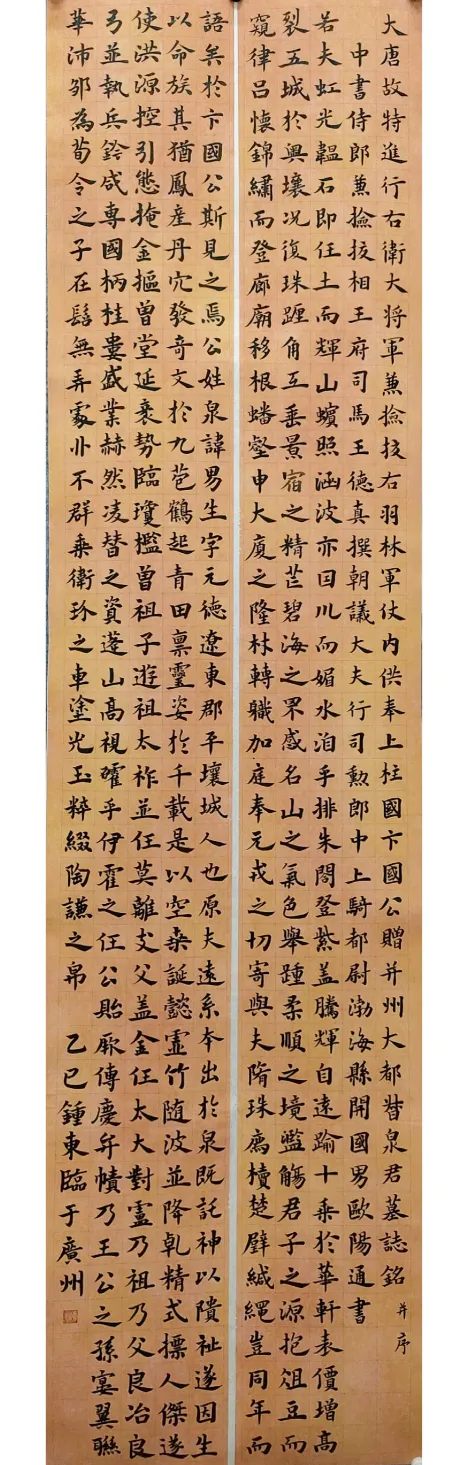 大唐故特進行右衛大將軍兼撿挍右羽林軍仗内供奉上柱國卞國公贈并州大都督泉君墓誌銘 并序
中書侍郎兼撿挍相王府司馬王德真撰朝議大夫行司勳郎中上騎都尉渤海縣開國男歐陽通書
若夫虹光韞石即任土而輝山蠙照涵波亦因川而媚水洎乎排朱閤登紫盖騰輝自遠踰十乘於華軒表價增高
裂五城於輿壤况復珠躔角互垂景宿之精芒碧海之罘感名山之氣色舉踵柔順之境濫觴君子之源抱俎豆而
窺律吕懷錦繡而登廊廟移根蟠壑申大廈之隆材轉職加庭奉元戎之切寄與夫隋珠薦櫝楚璧緘繩豈同年而
語矣於卞國公斯見之焉公姓泉諱男生字元德遼東郡平壤城人也原夫遠系本出於泉既託神以隤祉遂因生
以命族其猶鳳産丹穴發奇文於九苞鶴起青田禀靈姿於千載是以空桑誕懿虛竹随波並降乾精式摽人傑遂
使洪源控引態掩金樞曾堂延袤勢臨瓊檻曾祖子遊祖太祚並任莫離支父盖金任太大對盧乃祖乃父良冶良
弓並執兵鈐咸專國柄桂婁盛業赫然凌替之資蓬山高視確乎伊霍之任公貽厥傳慶弁幘乃王公之孫宴翼聯
華沛邹為荀令之子在髫無弄處丱不群乘衛玠之車塗光玉粹綴陶謙之帛 乙巳鍾東臨于廣州